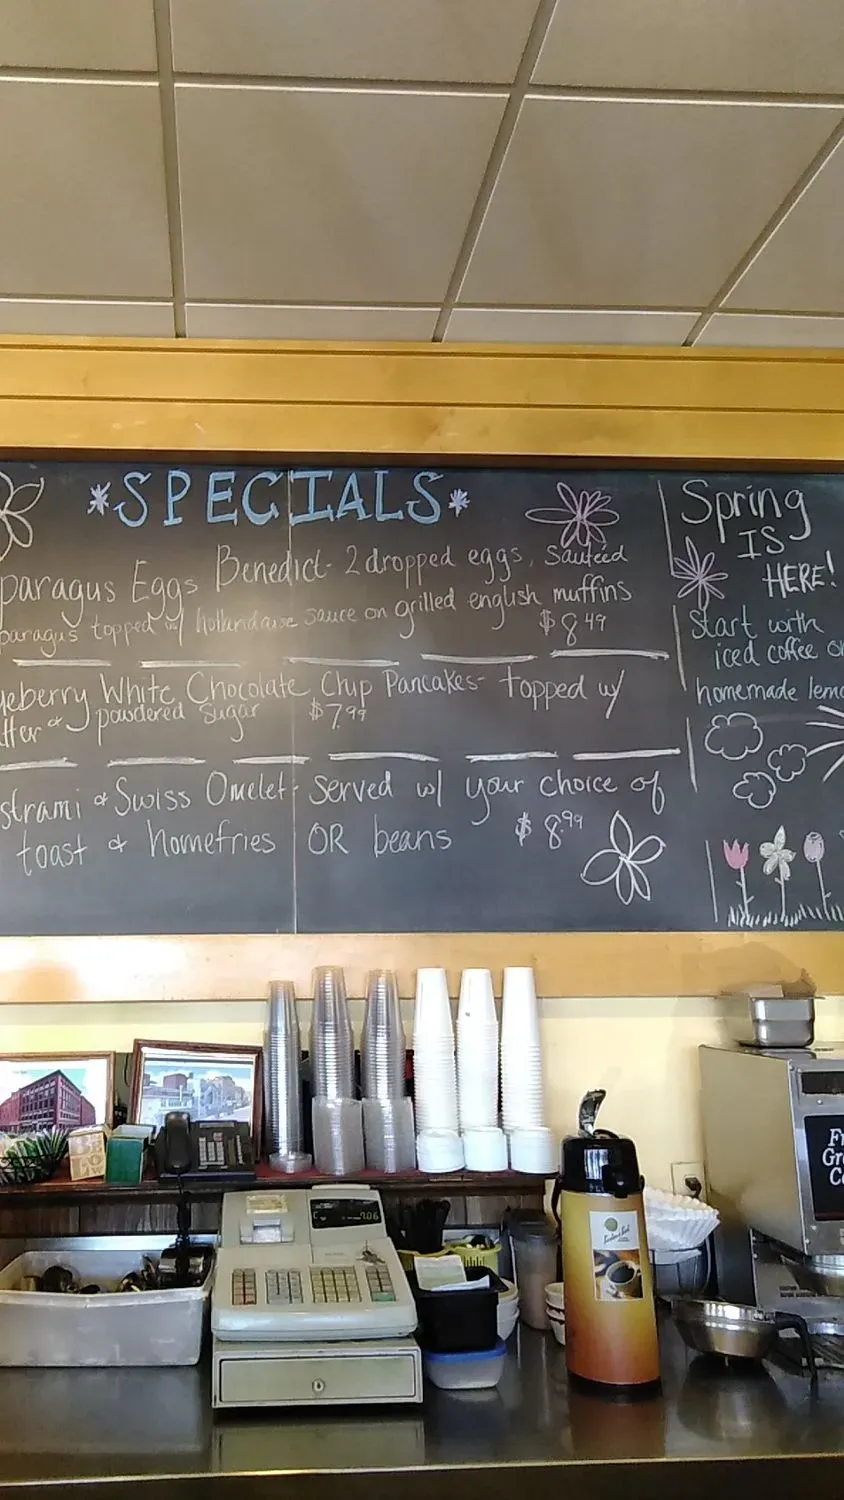 *SPECIALS*
paragus Eggs Benedict- 2 dropped eggs, sautéed
paragus topped w/ hollandaise sauce on grilled english muffins
$8.49
eberry White Chocolate Chip Pancakes- topped w/
tter & powdered sugar $7.99
strami & Swiss Omelet- served w/ your choice of
toast & homefries OR beans $8.99
Spring
IS
HERE!
Start with
iced coffee o
homemade lemo
7.06
Fr
Gr
Co